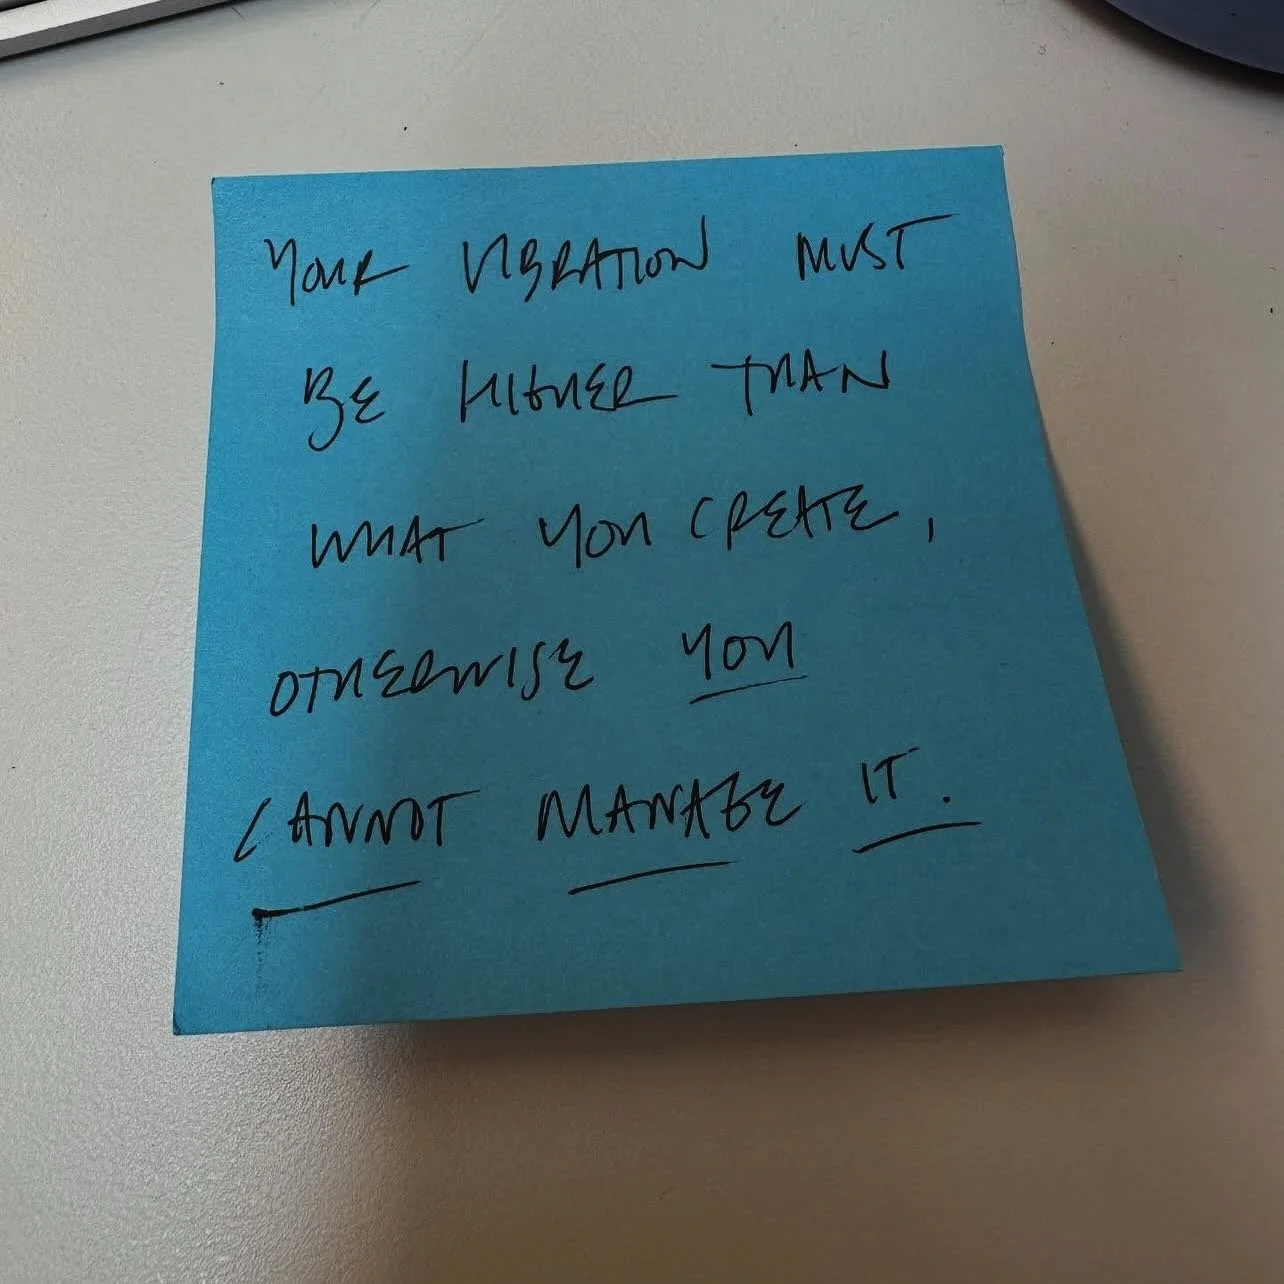 YOUR VIBRATION MUST
BE HIGHER THAN
WHAT YOU CREATE,
OTHERWISE YOU
CANNOT MANAGE IT.